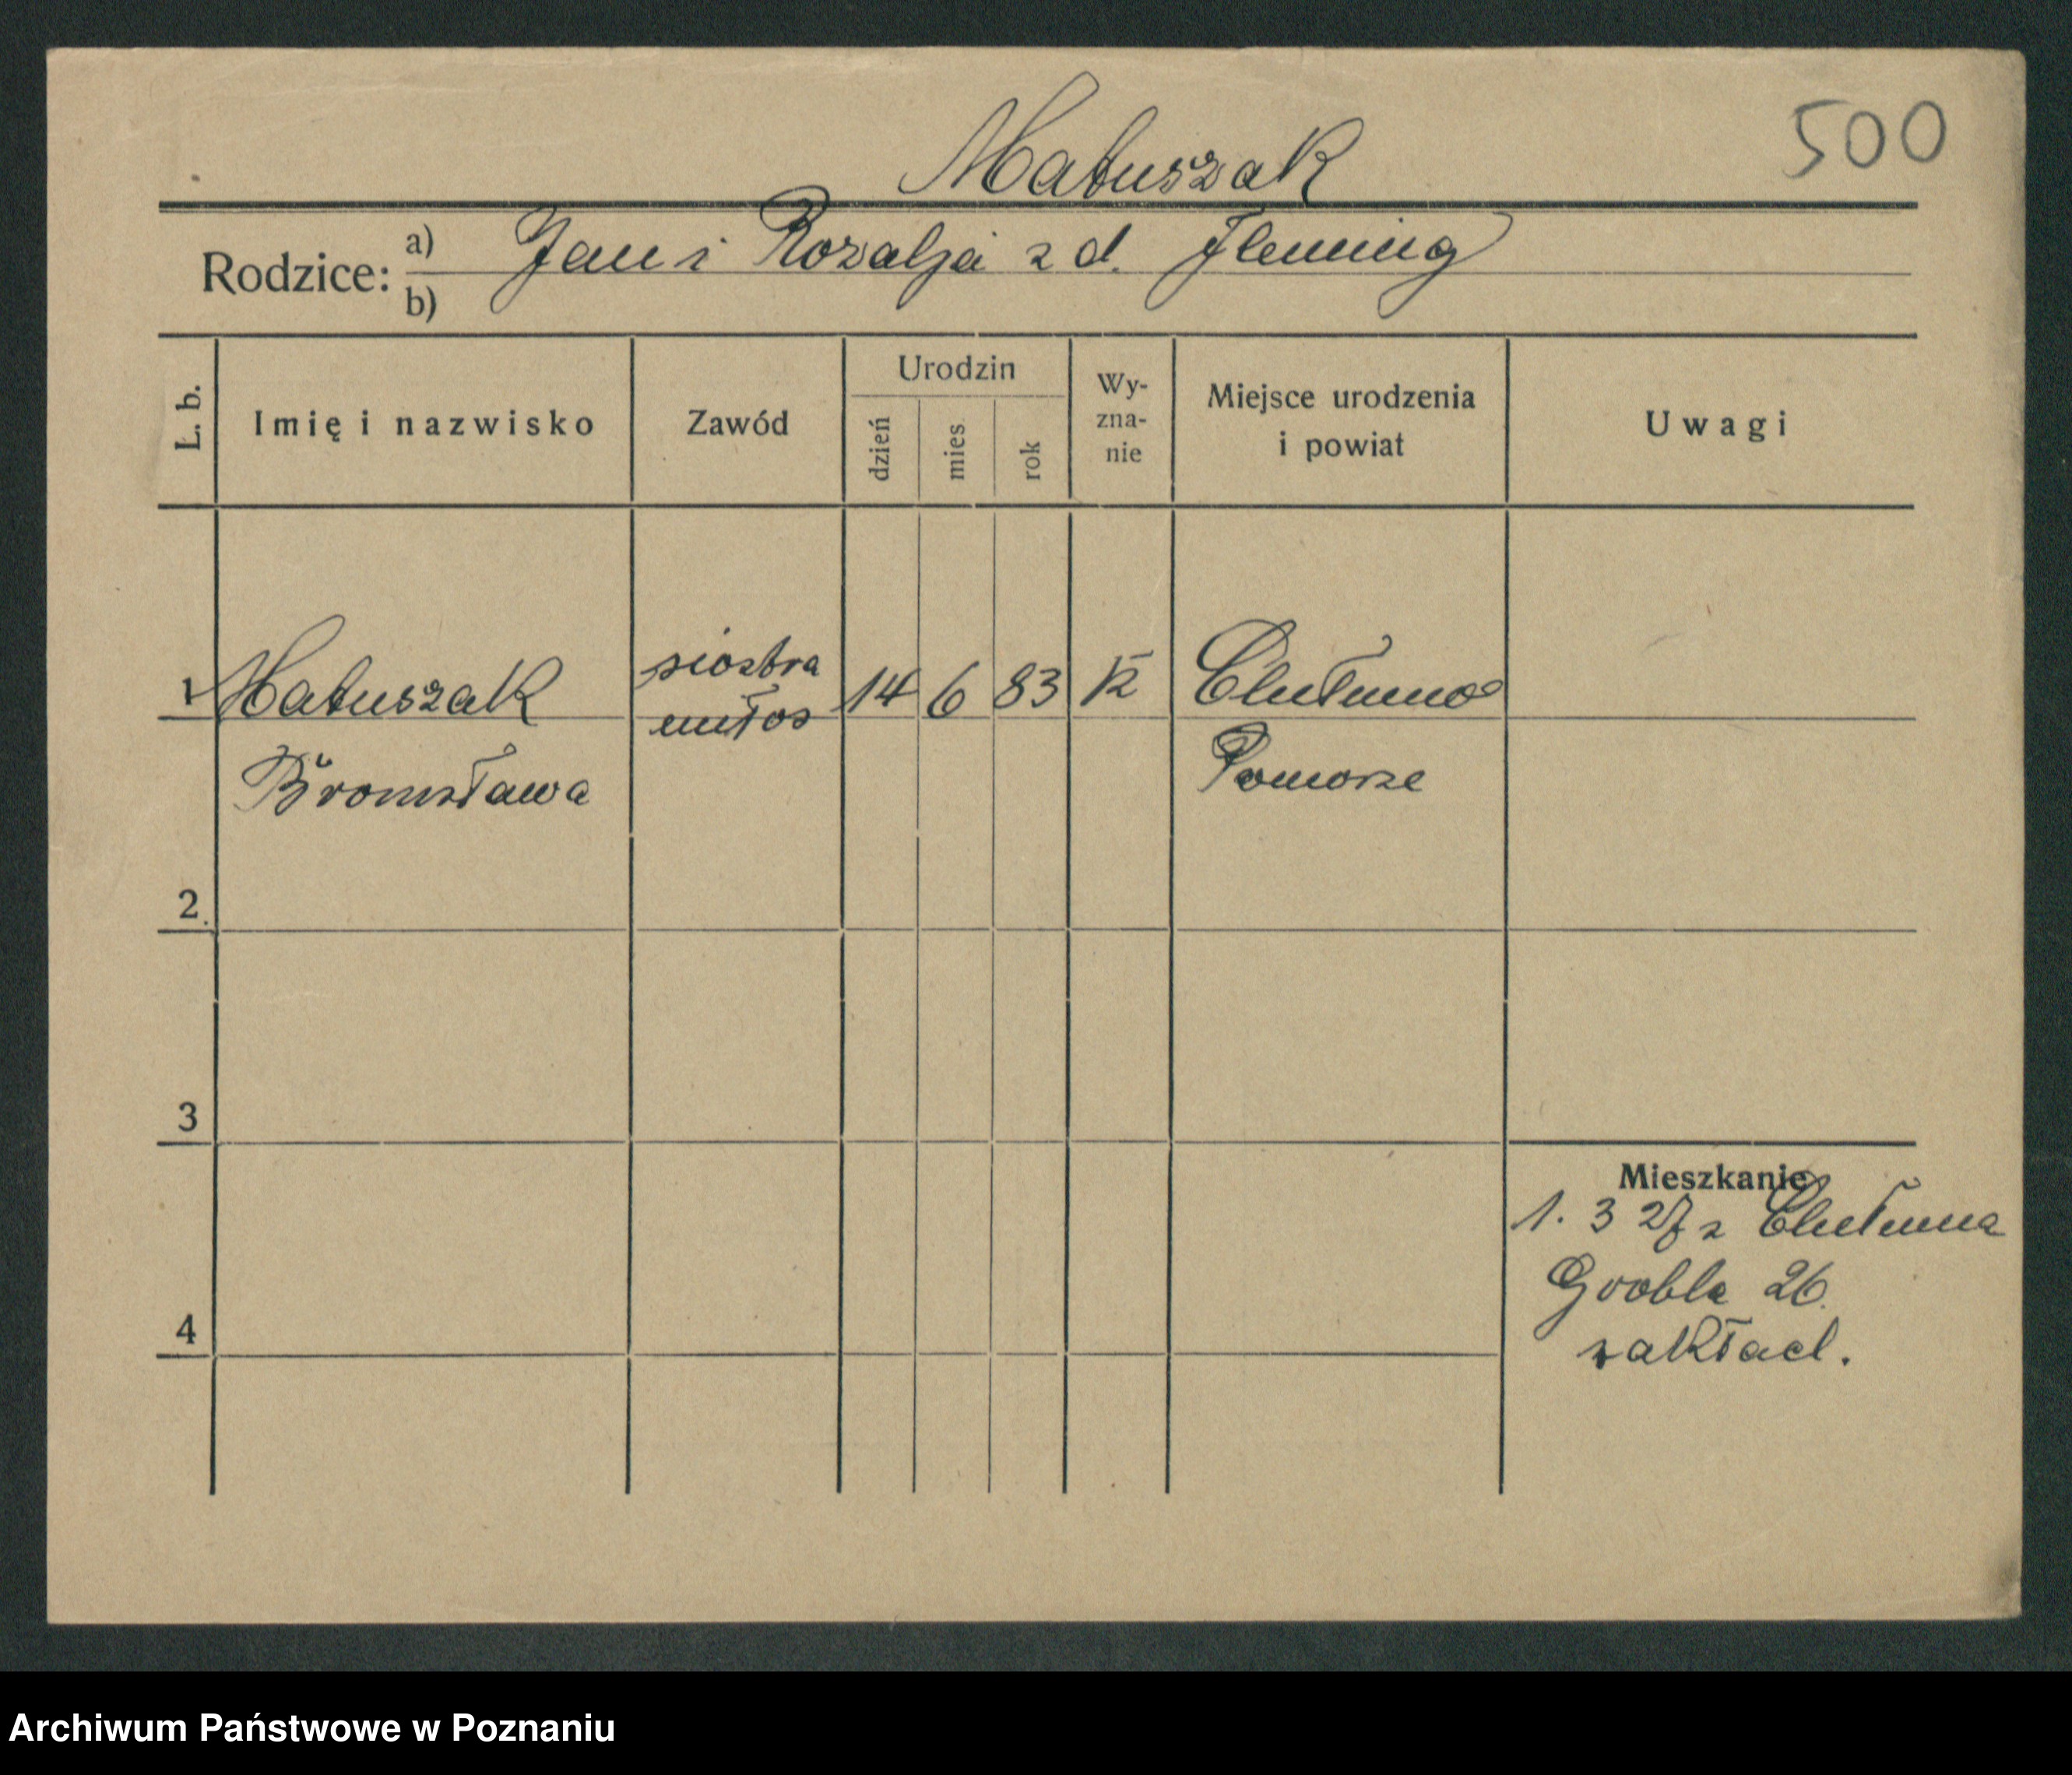 Matuszak
500
Rodzice: a) Jan i Rozalja z d. Fleming
b)
L. b.
Imię i nazwisko
Zawód
Urodzin
dzień
mies
rok
Wy-
zna-
nie
Miejsce urodzenia
i powiat
Uwagi
1 Matuszak
Bronisława
siostra
miłos
14 6 83 K
Chełmno
Pomorze
2.
3
4
Mieszkanie
1. 3 27 z Chełmna
Grobla 26.
zakład.
Archiwum Państwowe w Poznaniu